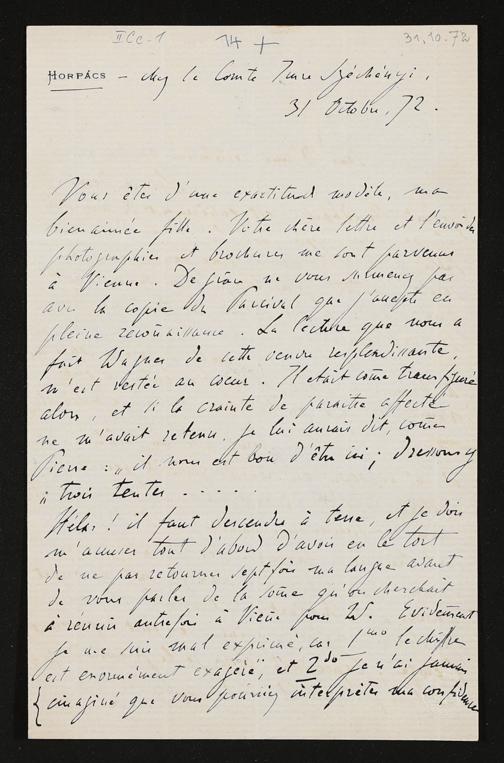 II Cc-1 14 + 31.10.72
HORPÁCS – chez le Comte Imre Széchényi,
31 Octobre, 72.
Vous êtes d'une exactitude modèle, ma
bienaimée fille. Votre chère lettre et l'envoi des
photographies et brochures me sont parvenus
à Vienne. De grâce ne vous surmenez pas
avec la copie du Parcival que j'accepte en
pleine reconnaissance. La lecture que nous a
fait Wagner de cette œuvre resplendissante,
m'est restée au cœur. Il était come transfiguré
alors, et si la crainte de paraitre affecté
ne m'avait retenu, je lui aurais dit, come
Pierre: „il nous est bon d'être ici; dressons y
„trois tentes - - - - -
Hélas! il faut descendre à terre, et je dois
m'accuser tout d'abord d'avoir eu le tort
de ne pas retourner sept fois ma langue avant
de vous parler de la some qu'on cherchait
à réunir autrefois à Viene pour W. Evidement
je me suis mal exprimé, car 1mo le chiffre
est enormément exagéré, et 2do je n'ai jamais
imaginé que vous pourriez interpréter ma confidence